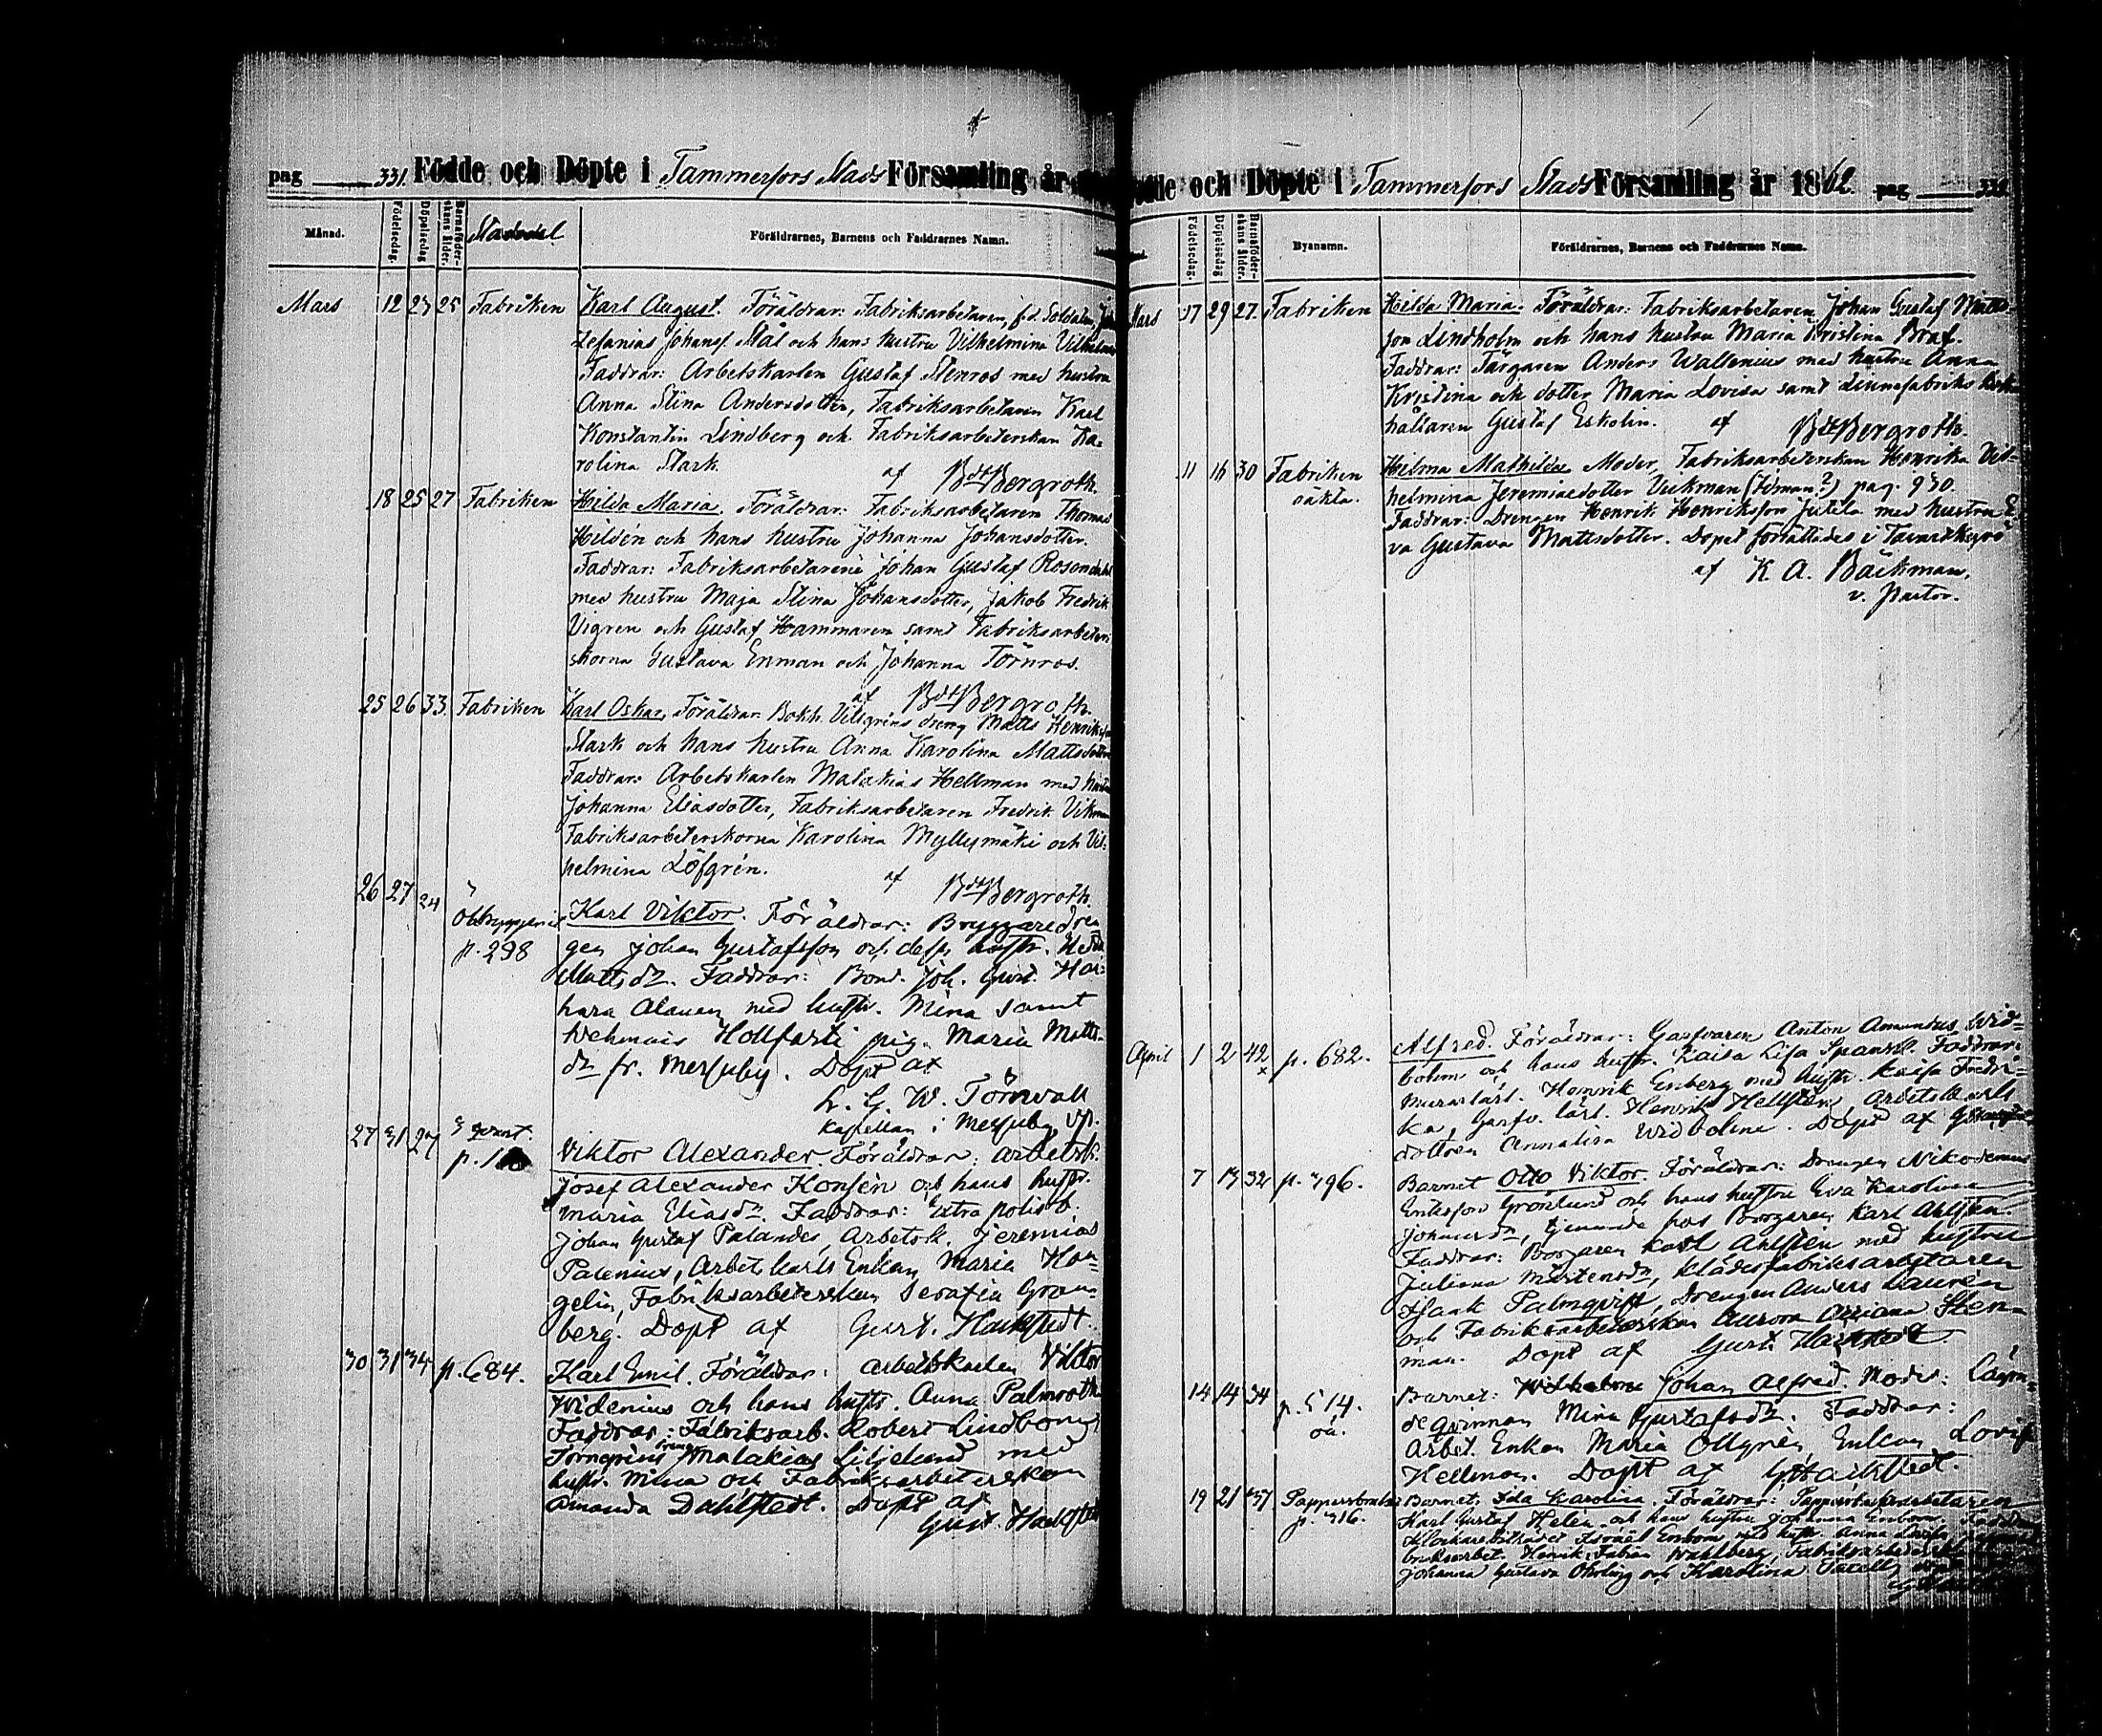 pag 331. Födde och Döpte i Tammerfors Stads Församling år
Månad. Födelsedag. Döpelsedag Barnaföderskans ålder. Stadsdel Föräldrarnes, Barnens och Faddrarnes Namn.
Mars 12 23 25 Fabriken Karl August. Föräldrar: Fabriksarbetaren, f.d. Soldaten,
Zefanias Johansf. Stål och hans hustru Vilhelmina
Faddrar: Arbetskarlen Gustaf Stenros med hustru
Anna Stina Andersdotter, Fabriksarbetaren Karl
Konstantin Lindberg och Fabriksarbeterskan Ka-
rolina Stark. af Bdt Bergroth.
18 25 27 Fabriken Hilda Maria. Föräldrar: Fabriksarbetaren Thomas
Hildén och hans hustru Johanna Johansdotter.
Faddrar: Fabriksarbetarene Johan Gustaf Rosendahl
med hustru Maja Stina Johansdotter, Jakob Fredrik
Vigren och Gustaf Hammaren samt Fabriksarbeter-
skorna Gustava Enman och Johanna Törnros.
af Bdt Bergroth.
25 26 33 Fabriken Karl Oskar, Föräldrar: Bokh. dreng Matts
Stark och hans hustru Anna Karolina Mattsdotter
Faddrar: Arbetskarlen Malakias Hellman med
Johanna Eliasdotter, Fabriksarbetaren Fredrik
Fabriksarbeterskorna Karolina Myllymäki och Vil-
helmina Löfgrén. af Bdt Bergroth.
26 27 24 Ölbryggeriet Karl Viktor. Föräldrar: Bryggaredren
p. 298 gen Johan Gustafsson och dess hustr. Hedda
Mattsdr. Faddrar: Bond. Joh. Gust. Hai-
hara Alanen med hustr. Mina samt
pig. Maria Matts-
dr fr. Messuby. Döpt af
L. G. W. Törnwall
Kapellan i Messuby,
27 31 27 qvart. Viktor Alexander. Föräldrar: arbetsk.
p. Josef Alexander Konsén och hans hustr.
Maria Eliasdr. Faddrar: Extra polisb.
Johan Gustaf Palander, Arbetsk. Jeremias
Palenius, Arbetskarls Enkan Maria Hon-
gelin, Fabriksarbeterskan Serafia Gran-
berg. Döpt af Gust. Hackstedt.
30 31 34 p. 684. Karl Emil. Föräldrar: arbetskarlen Viktor
Widenius och hans hustr. Anna Palmroth
Faddrar: Fabriksarb. Robert Lindbom,
Törnqvists dreng Malakias Liljelund med
hustr. Mina och Fabriksarbeterskan
Amanda Dahlstedt. Döpt af
Gust. Hackstedt
och Döpte i Tammerfors Stads Församling år 1862. pag
Födelsedag. Döpelsedag Barnaföderskans ålder. Byanamn. Föräldrarnes, Barnens och Faddrarnes Namn.
Mars 17 29 27 Fabriken Hilda Maria. Föräldrar: Fabriksarbetaren Johan Gustaf Matts-
son Lindholm och hans hustru Maria Kristina Braf.
Faddrar: Färgaren Anders Wallenius med hustru Anna
Kristina och dotter Maria Lovisa samt Linnefabriks bok-
hållaren Gustaf Eskolin. af Bdt Bergroth.
11 16 30 Fabriken Hilma Mathilda. Moder, Fabriksarbeterskan Henrika Vil-
oäkta. helmina Jeremiaedotter pag. 930.
Faddrar: Drengen Henrik Henriksson Jutila med hustru E-
va Gustava Mattsdotter. Dopet förrättades i Tavastkyro
af K A. Bäckman,
v. Pastor.
April 1 2 42 p. 682. Alfred. Föräldrar: Garfvaren Anton Amandus Wid-
bohm och hans hustr. Kaisa Lisa Faddrar:
Murarlärl. Henrik Enberg med hustr. Kaisa Fredri-
ka, Garfv. lärl. Henrik Hellstén, Arbetskarls
dottren Annalisa Widbohm. Döpt af
7 13 32 p. 396. Barnet Otto Viktor. Föräldrar: Drengen Nikodemus
Eriksson Grönlund och hans hustru Eva Karolina
Johansdr, tjenande hos Borgaren Karl Ahlstén.
Faddrar: Borgaren Karl Ahlstén med hustru
Juliana Mårtensdr, klädesfabriksarbetaren
Isaak Palmqvist, Drengen Anders Laurén
och Fabriksarbeterskan Aurora Sten-
man. Döpt af Gust. Hackstedt
14 14 34 p. 514. Barnet: Johan Alfred. Moder:
oä. Mina Gustafsdr. Faddrar:
Arbet. Enkan Maria Ollgrén, Enkan Lovis
Hellman. Döpt af G Hackstedt.
19 21 37 Pappersbruket Barnet: Ida Karolina. Föräldrar: Pappersbruksarbetaren
p. 316. Karl Gustaf Helén och hans hustru Johanna Enbom.
Klockarebiträdet Israel Enbom med hustr. Anna Lovisa,
bruksarbet. Henrik Fabian Wahlberg, Fabriksarbeterskorna
Johanna Gustava och Karolina